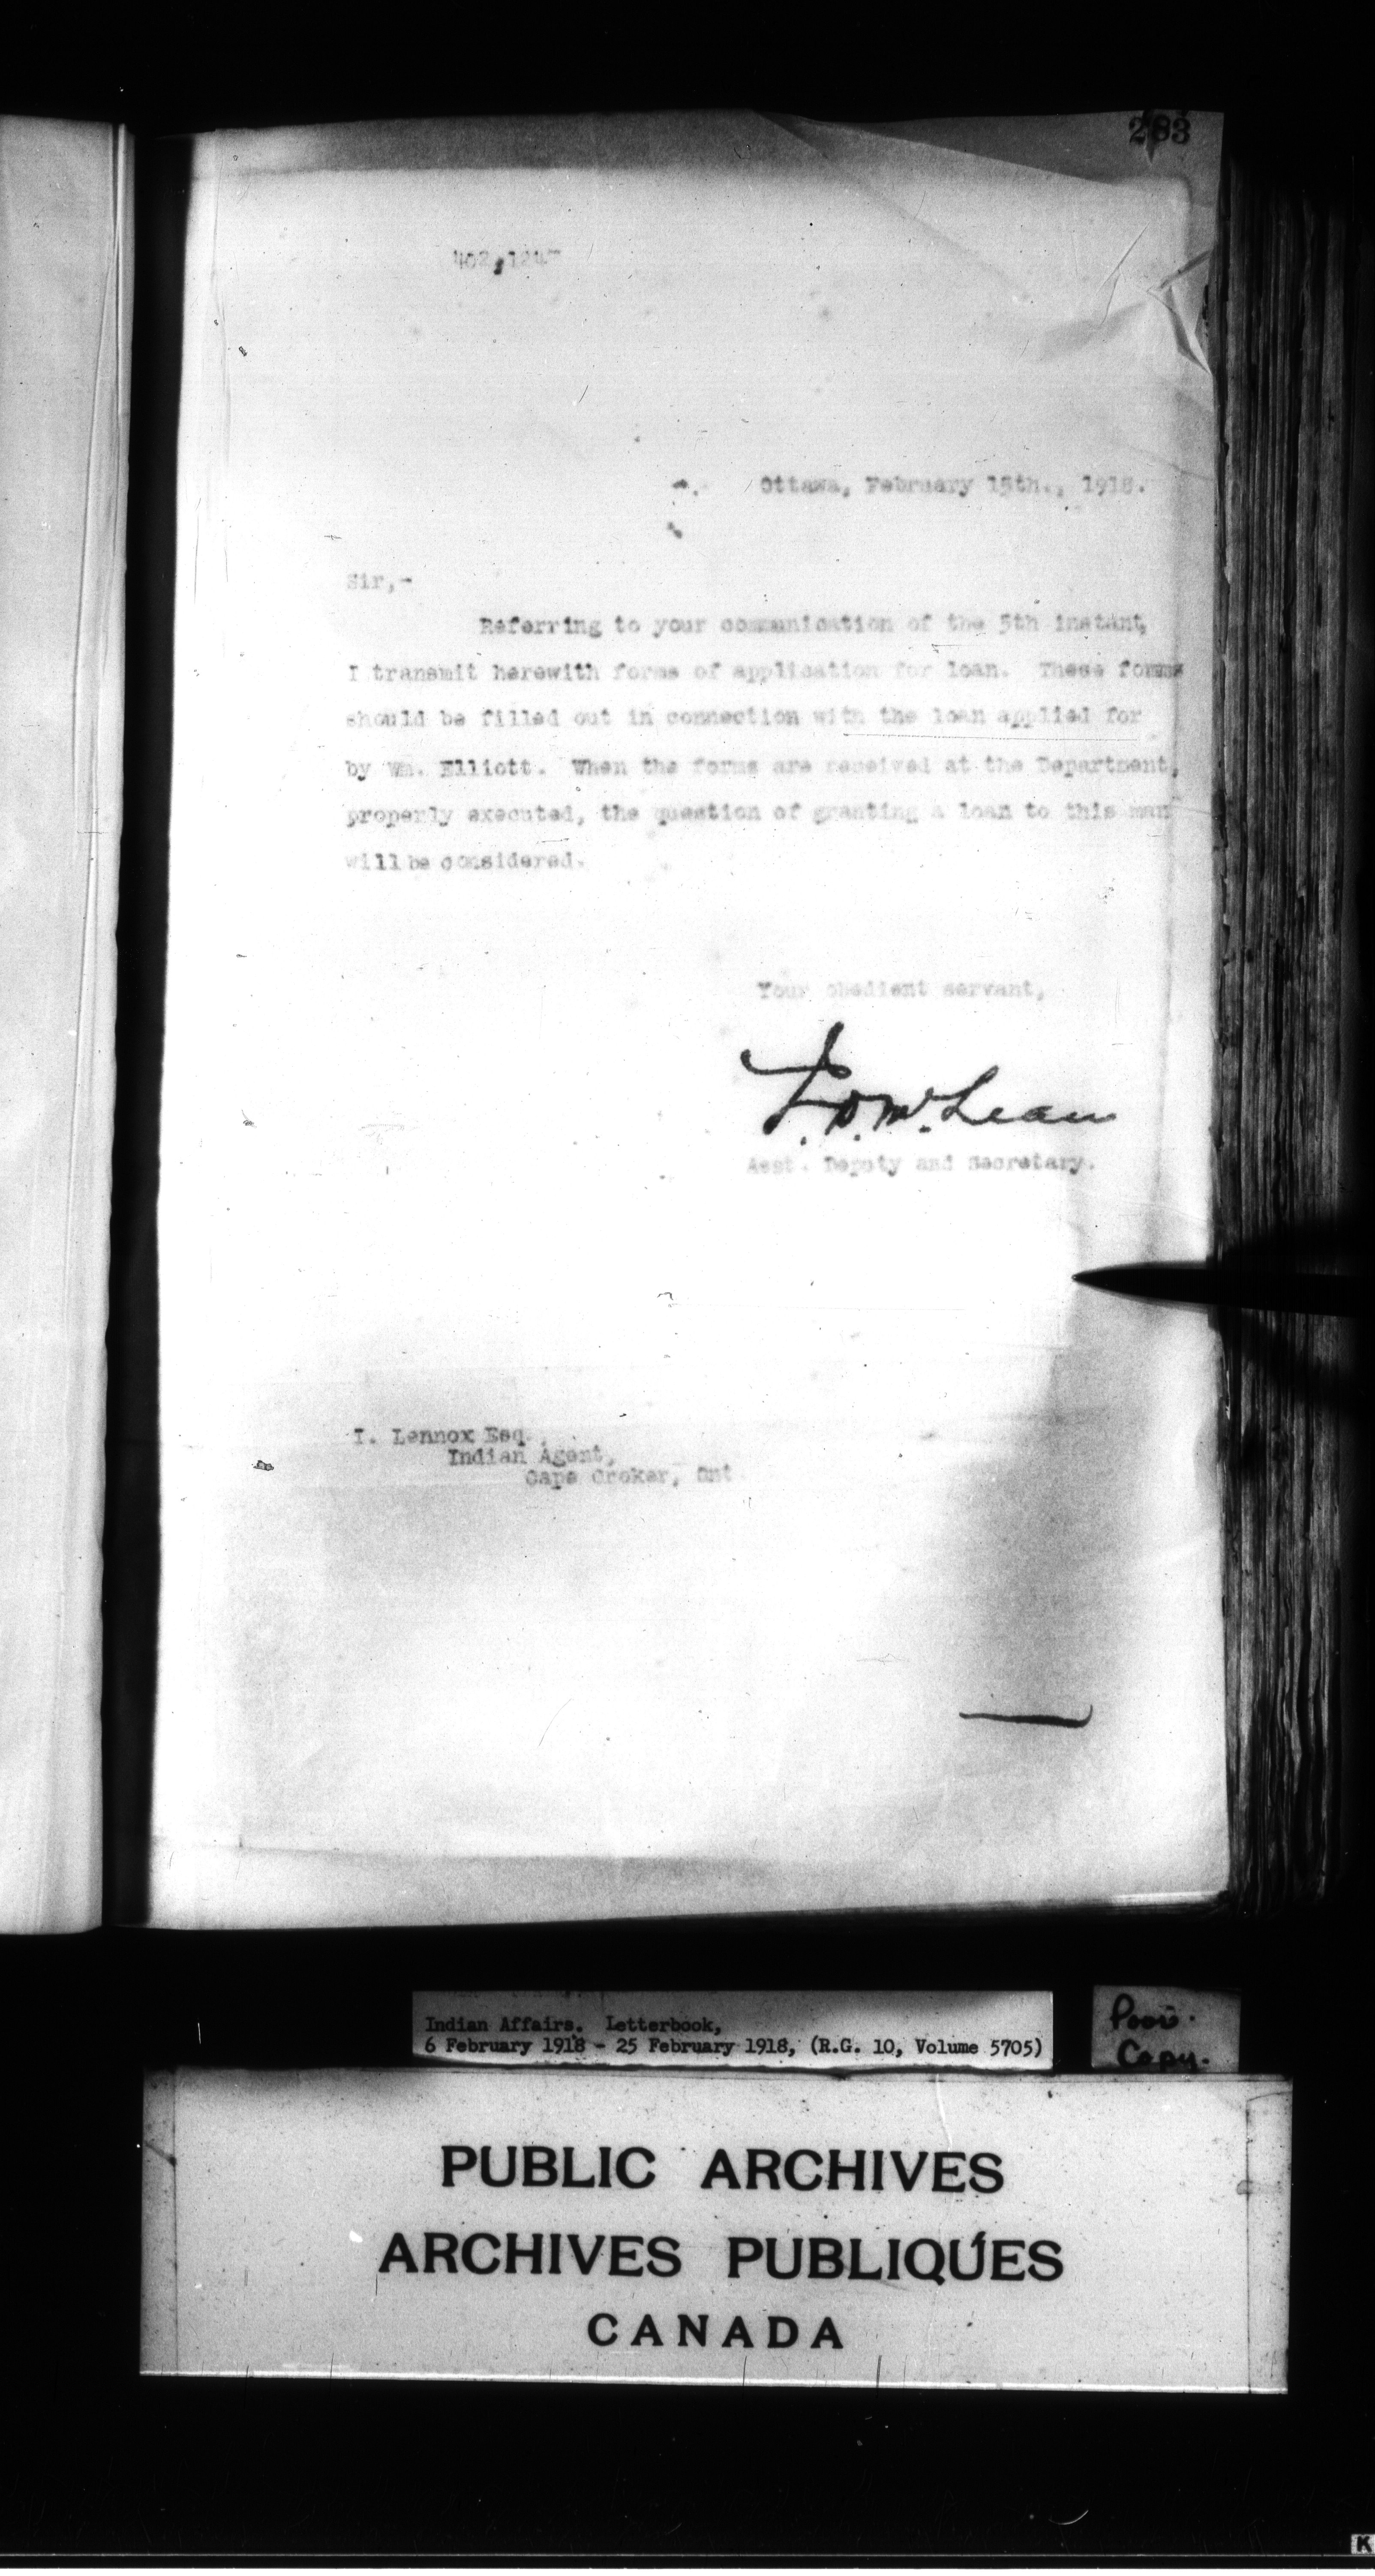 283
Ottawa, February 15th., 1918.
Sir,-
Referring to your communication of the 5th instant,
I transmit herewith forms of application for loan. These forms
should be filled out in connection with the loan applied for
by Wm. Elliott. When the forms are received at the Department,
properly executed, the question of granting a loan to this man
will be considered.
Your obedient servant,
J. D. McLean
Asst. Deputy and Secretary.
I. Lennox Esq.,
Indian Agent,
Cape Croker, Ont.
Indian Affairs. Letterbook,
6 February 1918 - 25 February 1918, (R.G. 10, Volume 5705)
Poor
Copy.
PUBLIC ARCHIVES
ARCHIVES PUBLIQUES
CANADA
K